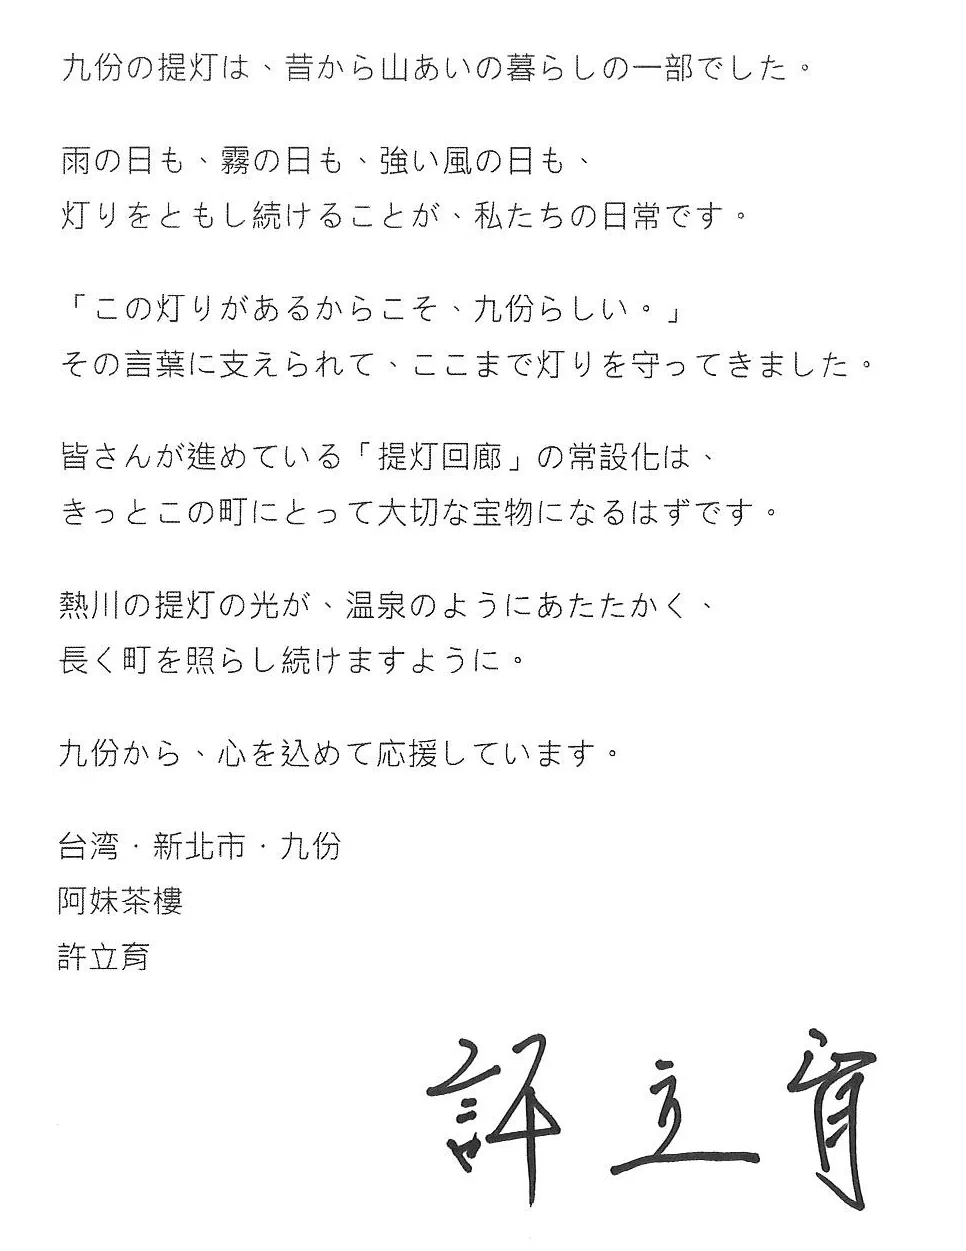 九份の提灯は、昔から山あいの暮らしの一部でした。
雨の日も、霧の日も、強い風の日も、
灯りをともし続けることが、私たちの日常です。
「この灯りがあるからこそ、九份らしい。」
その言葉に支えられて、ここまで灯りを守ってきました。
皆さんが進めている「提灯回廊」の常設化は、
きっとこの町にとって大切な宝物になるはずです。
熱川の提灯の光が、温泉のようにあたたかく、
長く町を照らし続けますように。
九份から、心を込めて応援しています。
台湾・新北市・九份
阿妹茶樓
許立育
許立育